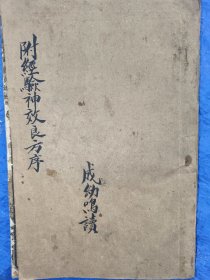 附經驗神效良方序
成幼鳴讀